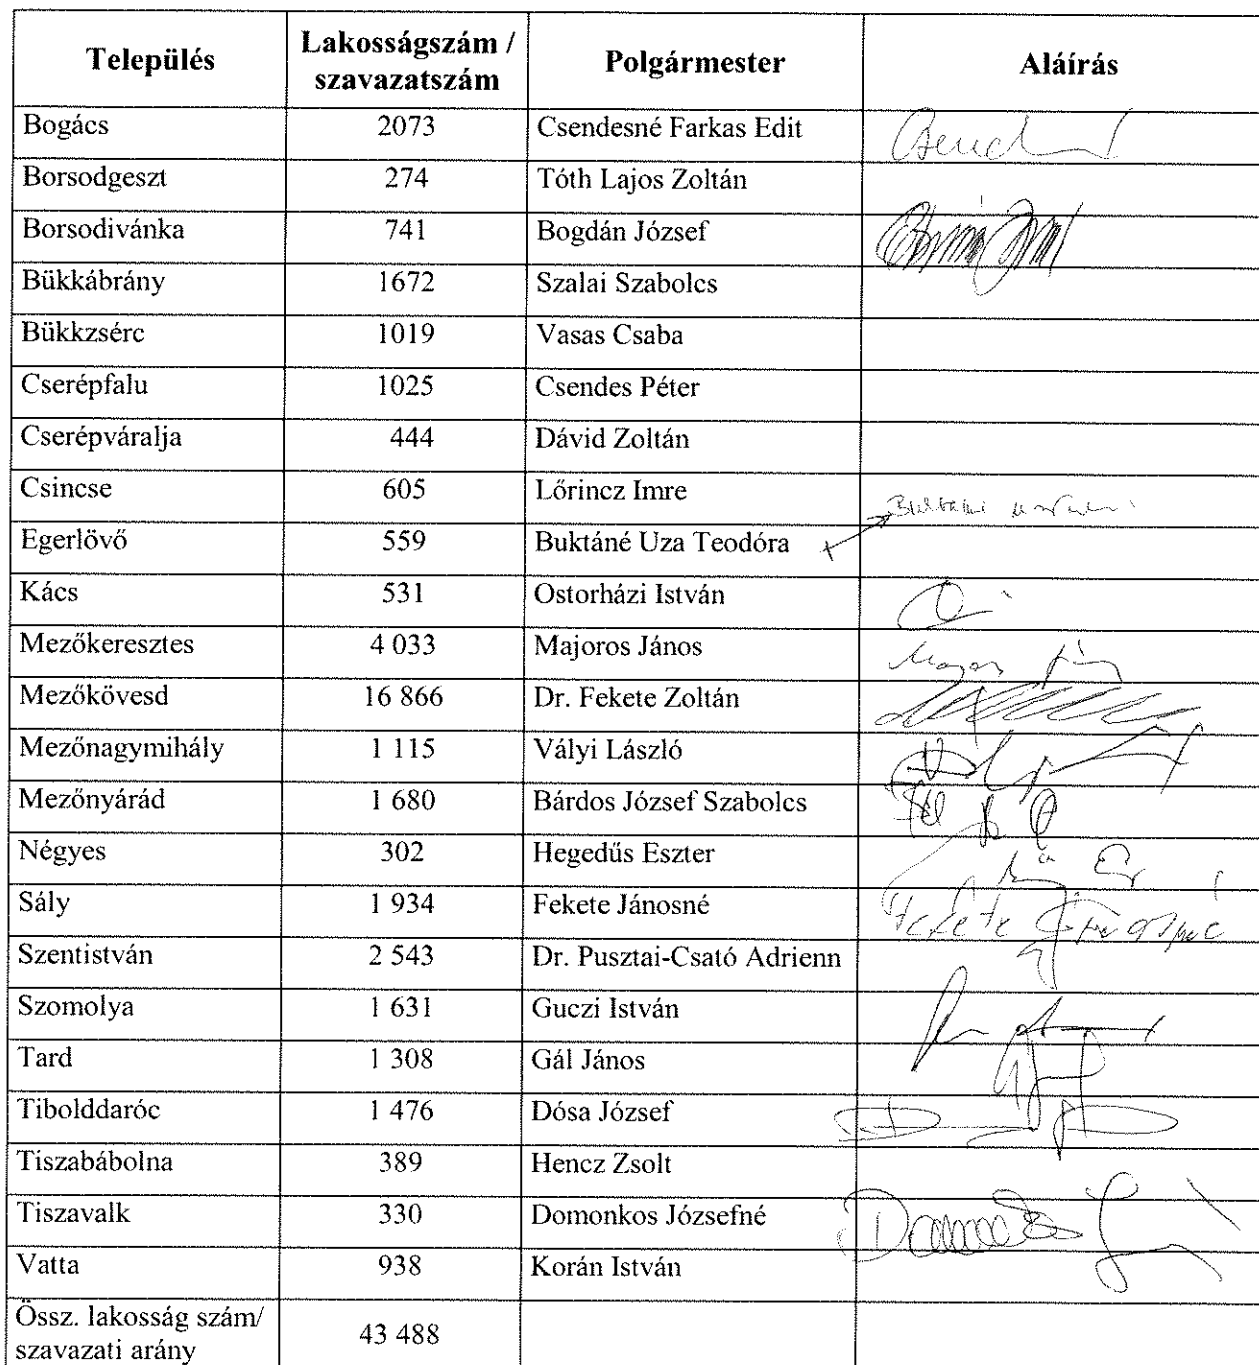 Település Lakosságszám / szavazatszám Polgármester Aláírás
Bogács 2073 Csendesné Farkas Edit
Borsodgeszt 274 Tóth Lajos Zoltán
Borsodivánka 741 Bogdán József
Bükkábrány 1672 Szalai Szabolcs
Bükkzsérc 1019 Vasas Csaba
Cserépfalu 1025 Csendes Péter
Cserépváralja 444 Dávid Zoltán
Csincse 605 Lőrincz Imre
Egerlövő 559 Buktáné Uza Teodóra
Kács 531 Ostorházi István
Mezőkeresztes 4 033 Majoros János
Mezőkövesd 16 866 Dr. Fekete Zoltán
Mezőnagymihály 1 115 Vályi László
Mezőnyárád 1 680 Bárdos József Szabolcs
Négyes 302 Hegedűs Eszter
Sály 1 934 Fekete Jánosné Fekete Jánosné
Szentistván 2 543 Dr. Pusztai-Csató Adrienn
Szomolya 1 631 Guczi István
Tard 1 308 Gál János
Tibolddaróc 1 476 Dósa József
Tiszabábolna 389 Hencz Zsolt
Tiszavalk 330 Domonkos Józsefné
Vatta 938 Korán István
Össz. lakosság szám/
szavazati arány 43 488